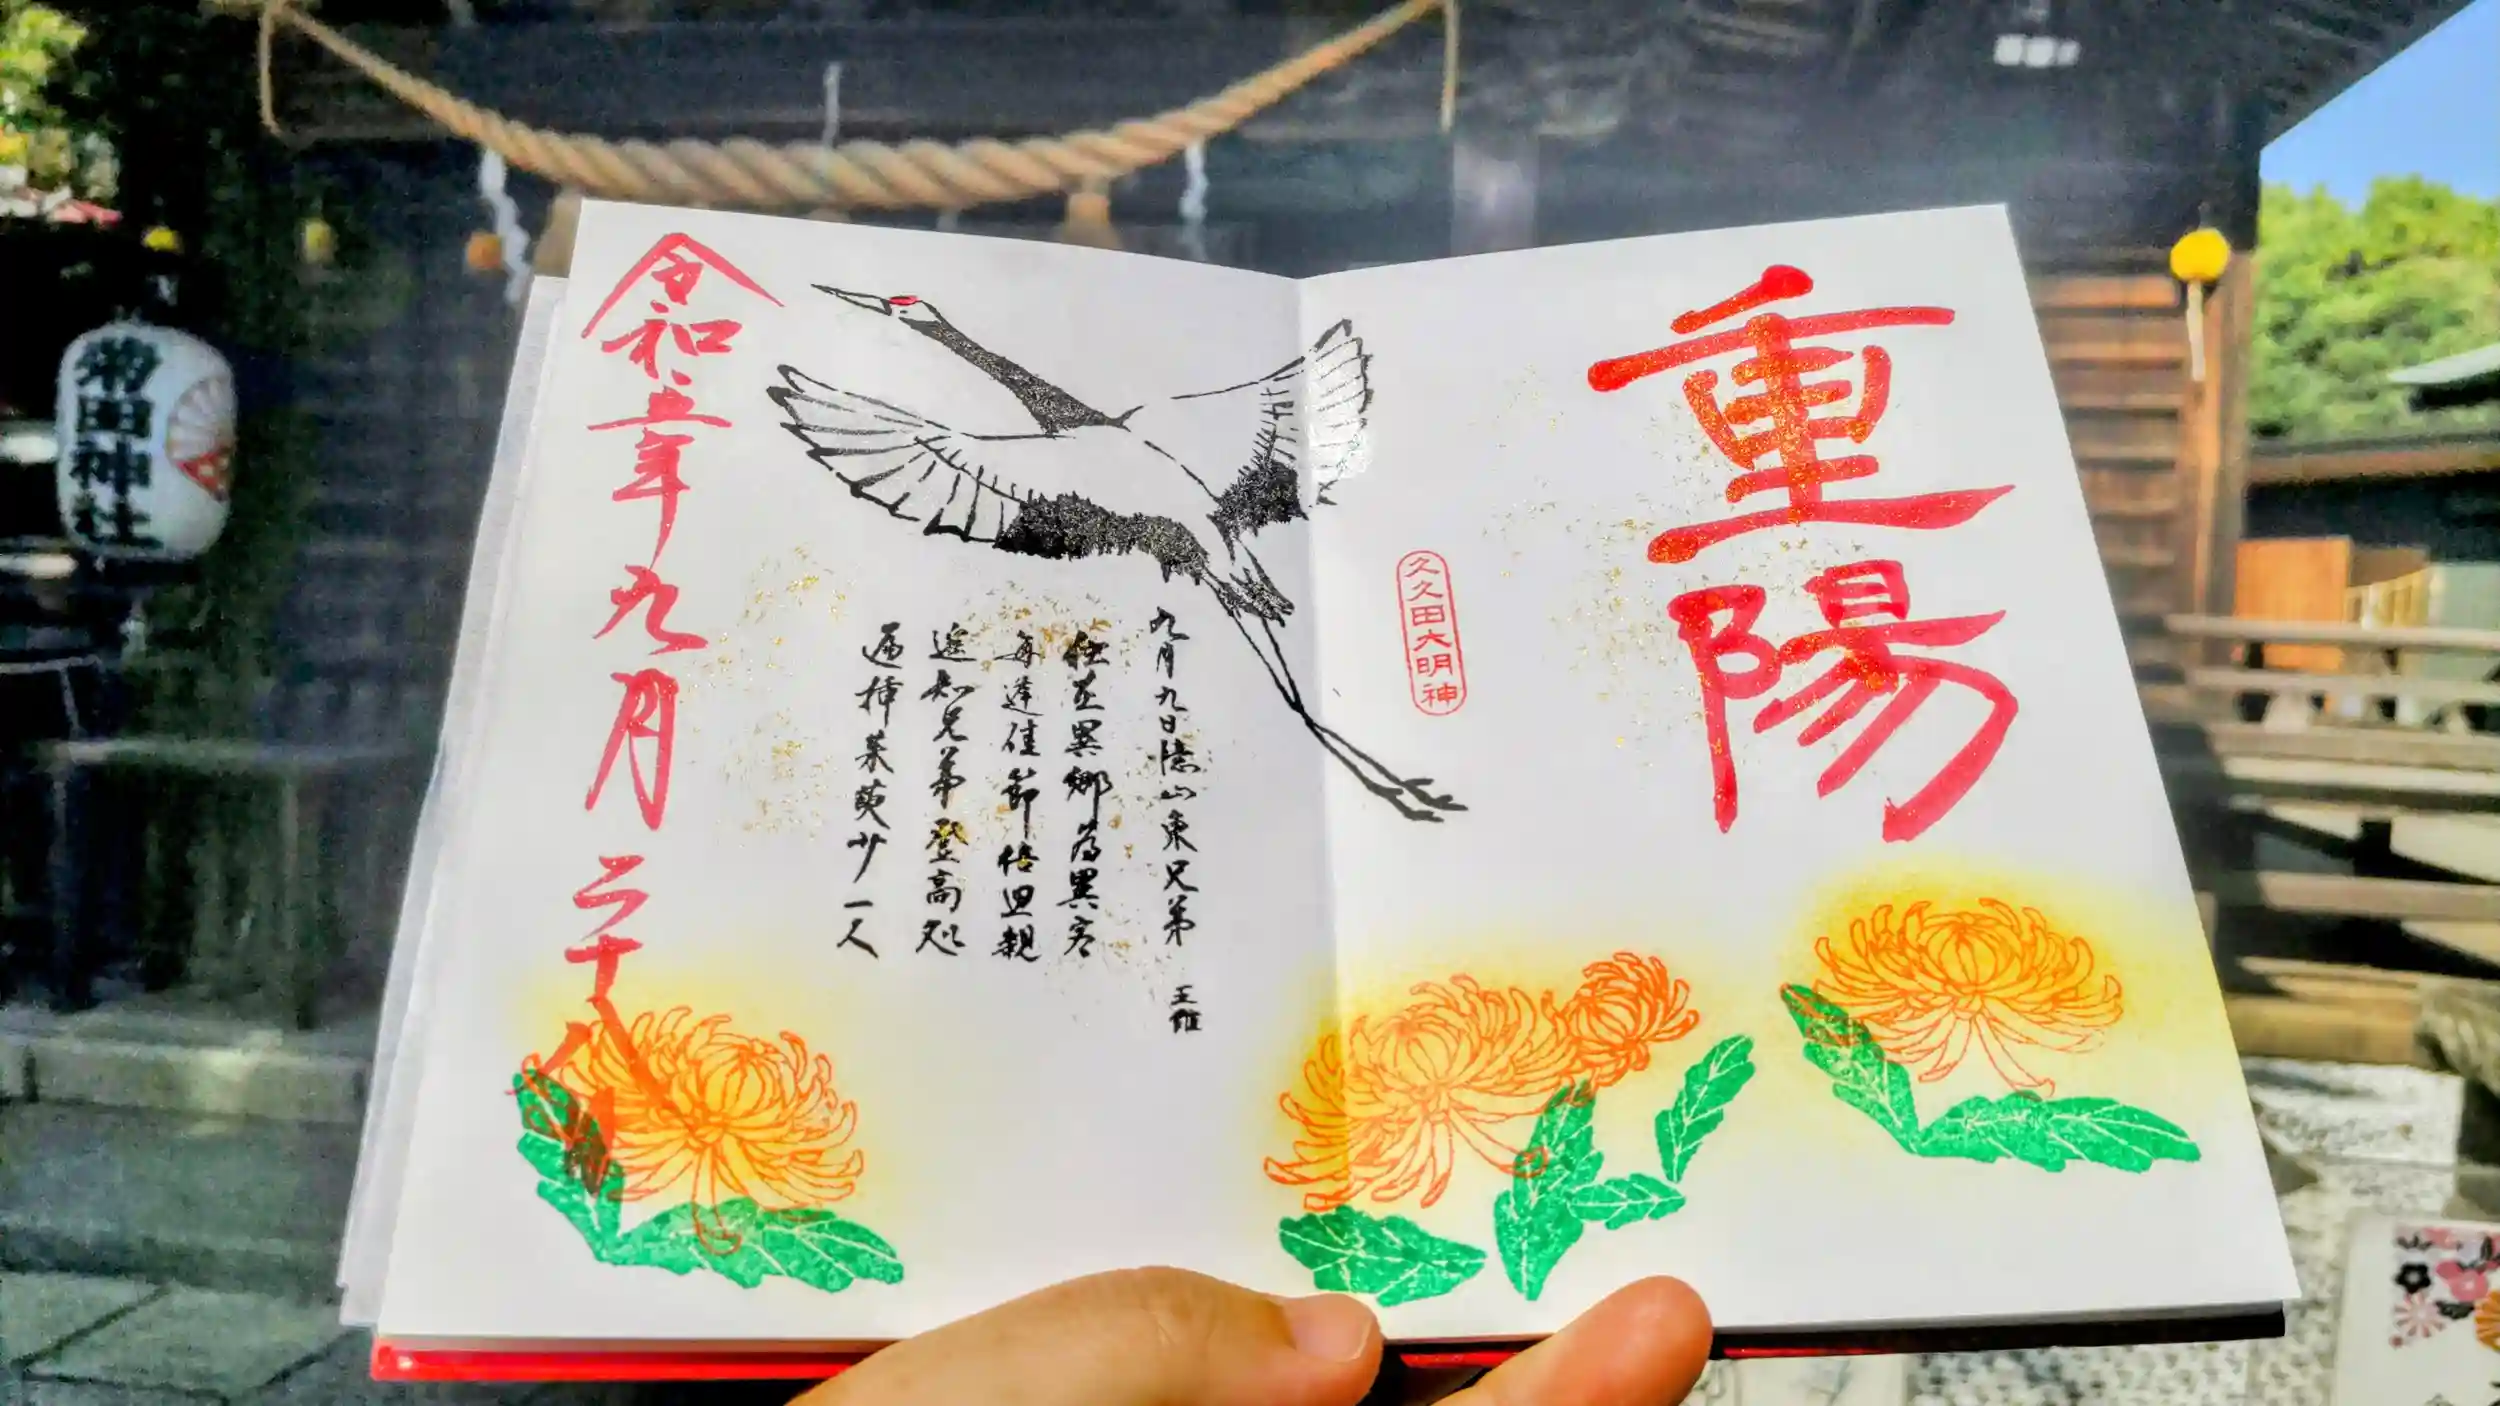 重陽
久久田大明神
九月九日憶山東兄弟 王維
独在異郷為異客
毎逢佳節倍思親
遥知兄弟登高処
遍挿茱萸少一人
令和五年九月二十八日
菊田神社